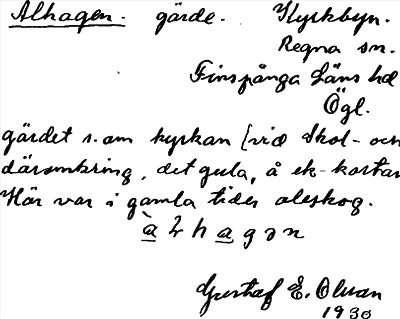 Alhagen. gärde. Kyrkbyn.
Regna sn.
Finspånga Läns hd
Ögl.
gärdet s. om kyrkan [vid Skol- och
däromkring, det gula, å ek-kartan
Här var i gamla tider aleskog.
Gustaf E. Olsson
1930